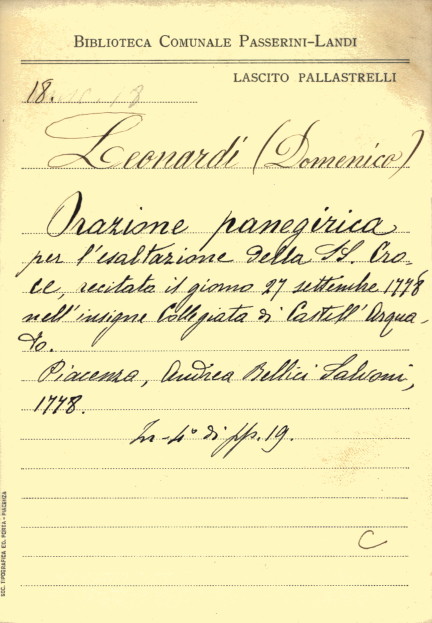 BIBLIOTECA COMUNALE PASSERINI-LANDI
LASCITO PALLASTRELLI
18.
Leonardi (Domenico)
Orazione panegirica
per l'esaltazione della SS. Cro-
ce, recitata il giorno 27 settembre 1778
nell'insigne Collegiata di Castell'Arqua-
to.
Piacenza, Andrea Bellici Salvoni,
1778.
In-4° di pp. 19.
C
SOC. TIPOGRAFICA ED. PORTA - PIACENZA